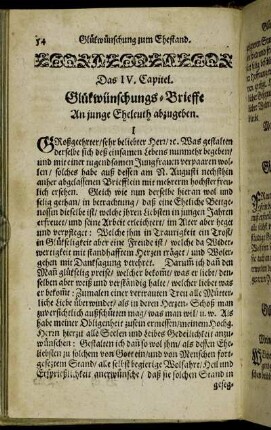 54 Glükwünschung zum Ehestand.
Das IV. Capitel.
Glükwünschungs-Brieffe
An junge Eheleuth abzugeben.
I
GRoßgeehrter/sehr beliebter Herr/ꝛc. Was gestalten
derselbe sich deß einsamen Lebens nunmehr begeben/
und mit einer tugendsamen Jungfrauen verpaaren wol-
len/ solches habe auß dessen am N. Augusti nechsthin
anher abgelassenen Brieffelein mit mehrern hocherfreu-
lich ersehen. Gleich wie nun derselbe hieran wol und
selig gethan/ in betrachtung/ daß eine Ehliche Bettge-
nossen dieselbe ist/ welche ihren Liebsten in jungen Jahren
erfreuet/ und seine Arbeit erleichtert/ im Alter aber heget
und verpfleget: Welche ihm in Traurigkeit ein Trost/
in Glükseligkeit aber eine Freude ist/ welche da Wider-
wertigkeit mit standhafftem Herzen träget/ und Woler-
gehen mit Danksagung verehret. Darum ich dañ den
Mañ glükselig preise/ welcher bekomt/ was er liebt/ den-
selben aber weiß und verständig halte/ welcher liebet was
er bekomt: Zumalen einer vertrauten Treu alle Mütter-
liche Liebe überwindet/ als in deren Herzen-Schoß man
zuversichtlich außschütten mag/ was man wil/ u. w. Als
habe meiner Obligenheit zusein ermessen/ meinem Hochg.
Herrn hierzu alle Seelen und Leibes Gedeilichkeit anzu-
wünschen: Gestalten ich dañ so wol ihm/ als dessen Ehe-
liebsten zu solchem von Gott ein/ und von Menschen fort-
gesetztem Stand/ alle selbst begierige Wolfahrt/ Heil und
Ersprießlichkeit anerwünsche/ daß sie solchen Stand in
geseg-